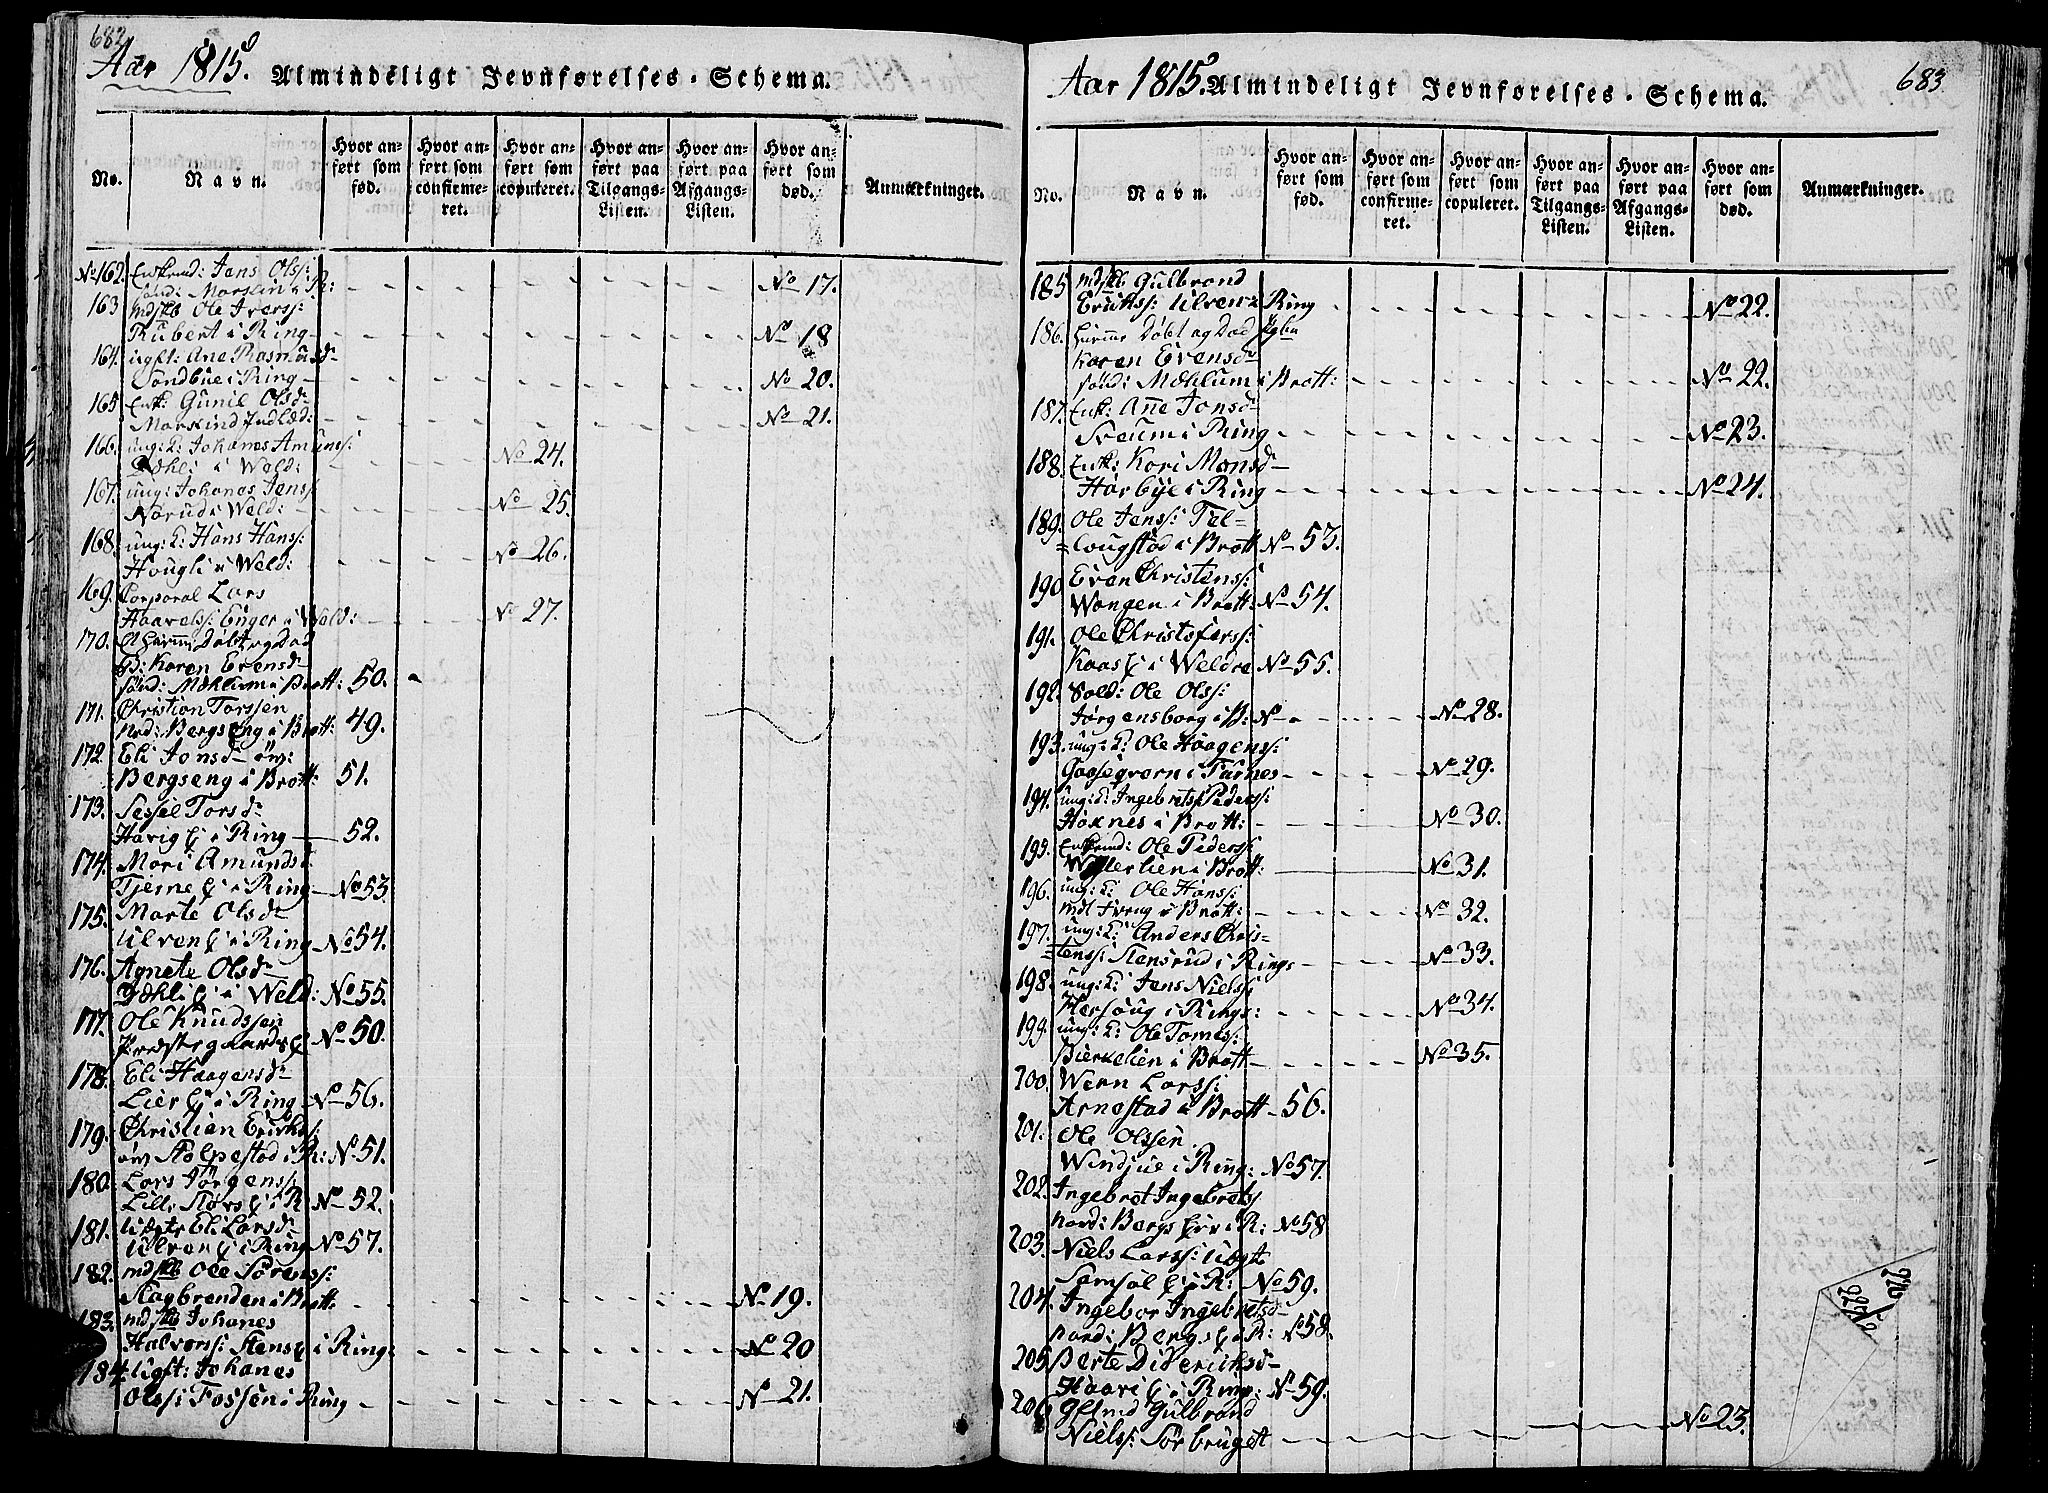 682
Aar 1815. Almindeligt Jevnførelses-Schema.
No.
Navn.
Hvor anført som fød.
Hvor anført som confirmeret.
Hvor anført som copuleret.
Hvor anført paa Tilgangs-Listen.
Hvor anført paa Afgangs-Listen.
Hvor anført som død.
Anmærkninger.
No 162. Enkemd: Jens Olss:
sönd: Morskin i R: No 17.
163 mdskb Ole Iverss:
Rubert i Ring No 18
164. ugft: Ane Rasmusd
Sandbue i Ring No 20.
165 Enk: Gunil Olsd
Morskind Indlæd: No 21.
166. ung: K: Johanes Amunss:
Dæhli i Weld: No 24.
167. ung: Johanes Jenss:
Norud i Weld: No 25.
168. ung: K: Hans Hanss:
Hougli i Weld: No 26.
169. Corporal Lars
Haavelss: Enger i Weld: No 27.
170. Döbt og Död
P: Karen Evensd
sönd: Mæhlum i Brott: 50.
171. Christian Torssen
nord: Bergseng i Brott: 49.
172. Eli Jonsd öv:
Bergseng i Brott: 51.
173. Sessel Torsd
Havig i Ring 52.
174. Mari Amundsd
Tjerne i Ring No 53
175. Marte Olsd
Ulven i Ring No 54.
176. Agnete Olsd
Dæhli i Weld: No 55.
177. Ole Knudssen
Prestegaards No 50.
178. Eli Haagensd
Lier i Ring No 56.
179. Christian Erikss:
öv Stolpestad i R: No 51.
180. Lars Jörgenss:
Lille Stors i R No 52.
181. Uægte Eli Larsd
Ulven i Ring No 57.
182. mdskb Ole Sörenss:
Stagbrenden i Brott No 19.
183. mdskb Johanes
Halvorss: Stens i Ring: No 20
184. ugft: Johanes
Olss: Fossen i Ring No 21.
Aar 1815. Almindeligt Jevnførelses-Schema.
683
No.
Navn.
Hvor anført som fød.
Hvor anført som confirmeret.
Hvor anført som copuleret.
Hvor anført paa Tilgangs-Listen.
Hvor anført paa Afgangs-Listen.
Hvor anført som død.
Anmærkninger.
185 mdskb Gulbrand
Erikss: Ulven i Ring No 22.
186. Döbt og Död
Karen Evensd
sönd: Mæhlum i Brott: No 22.
187. Enk: Ane Jonsd
Sveum i Ring No 23.
188. Enk: Kari Monsd
Harbye i Ring No 24.
189. Ole Jenss: Tal=
=lougstad i Brott No 53.
190 Even Christenss:
Wangen i Brott: No 54.
191. Ole Christoferss:
Kaas i Weldre No 55.
192. Sold: Ole Olss:
Jörgensborg i B: No 28.
193. ung: K: Ole Haagenss:
Gaasegvarn i Furnes No 29.
194. ung: K: Ingebret Pederss:
Höxnes i Brott: No 30.
195. Enkemd: Ole Pederss:
i Brott: No 31.
196. ung: K: Ole Hanss:
mdl Freng i Brott: No 32.
197. ung: K: Anders Chris=
=tenss: Stensrud i Rings No 33.
198. ung: K: Jens Nielss:
Hersoug i Rings: No 34.
199. ung: K: Ole Tomess:
Bierkelien i Brott No 35.
200. Wern Larss:
Arnestad i Brott 56.
201. Ole Olssen
Windjue i Ring: No 57.
202. Ingebret Ingebretss
nord: Bergs i R: No 58
203. Niels Larss: Uægt
Samsöl i R: No 59.
204. Ingebor Ingebretsd
nord: Bergs i R: No 58.
205 Berte Dideriksd
Haari i Ring: No 59.
206 Gftmd Gulbrand
Nielss: Sörbruget No 23.
226
225